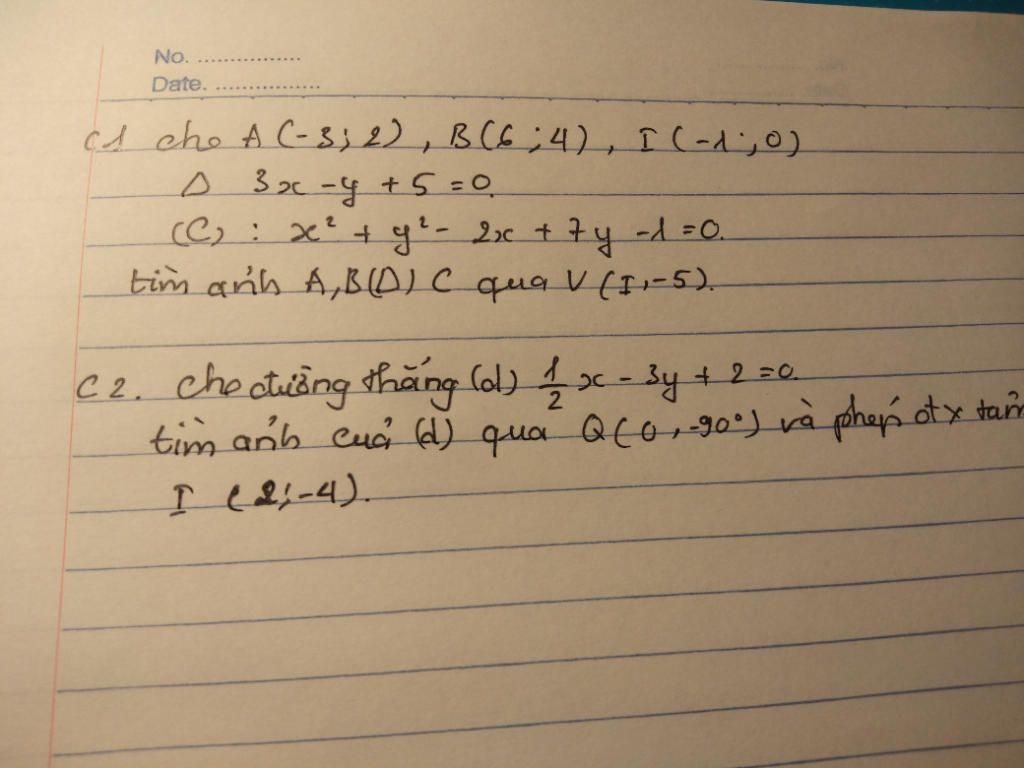 No. ................
Date. ................
C1 cho A(-3; 2), B(6; 4), I(-1; 0)
Δ 3x - y + 5 = 0.
(C) : x² + y² - 2x + 7y - 1 = 0.
tìm ảnh A, B(Δ) C qua V(I, -5).
C2. Cho đường thẳng (d) 1/2 x - 3y + 2 = 0.
tìm ảnh của (d) qua Q(0, -90°) và phép đtx tâm
I (2; -4).